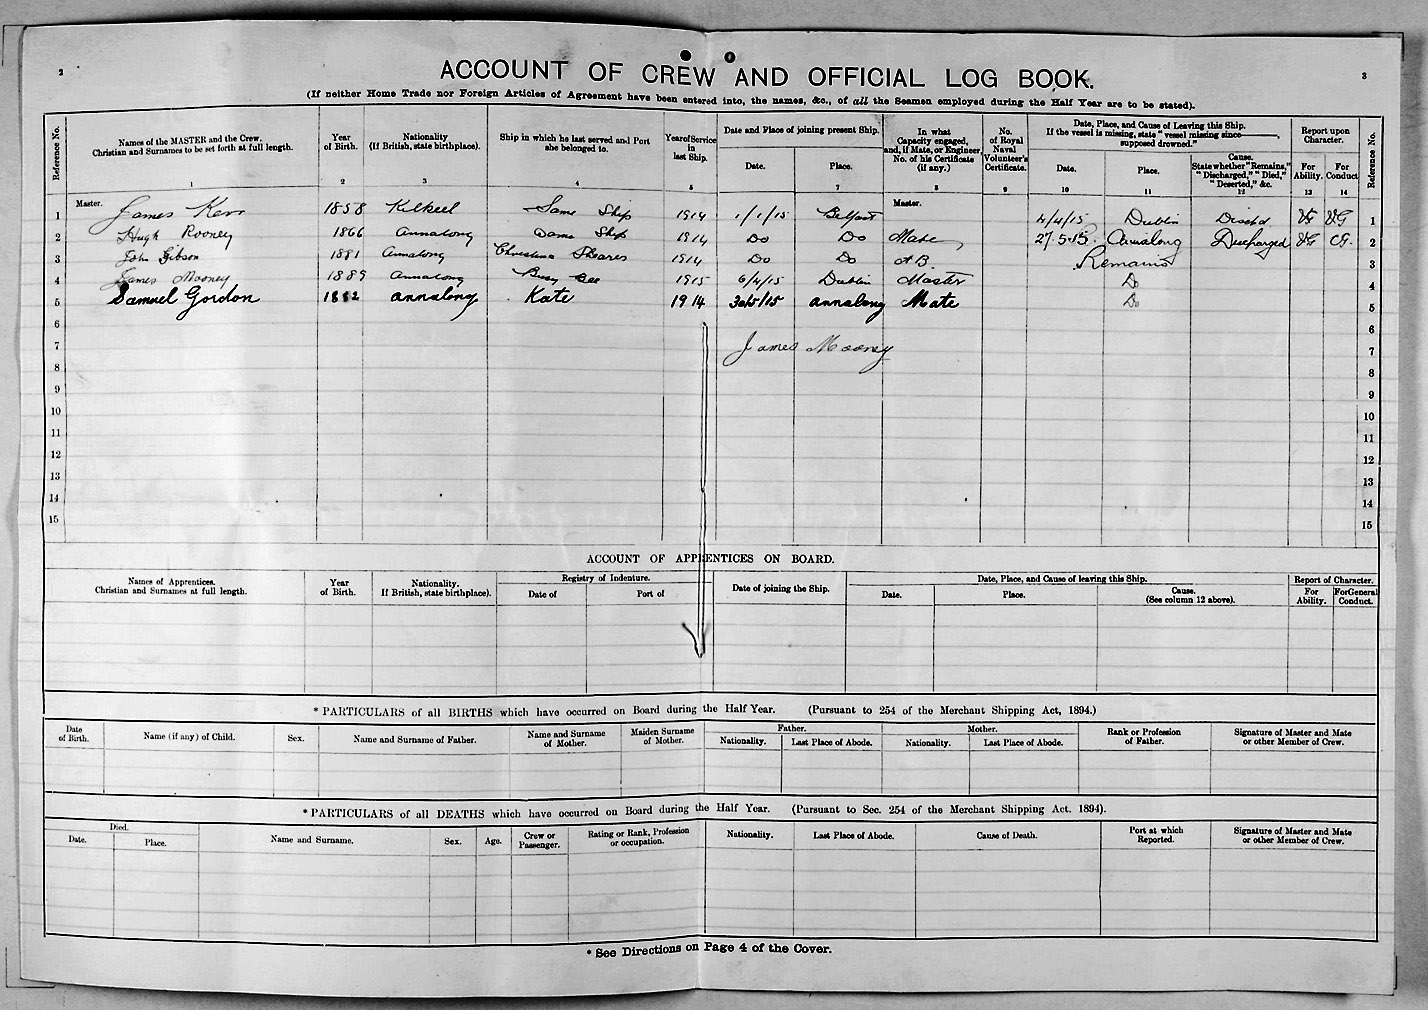 2
3
ACCOUNT OF CREW AND OFFICIAL LOG BOOK.
(If neither Home Trade nor Foreign Articles of Agreement have been entered into, the names, &c., of all the Seamen employed during the Half Year are to be stated).
Reference No.
Names of the MASTER and the Crew.
Christian and Surnames to be set forth at full length.
1
Year
of Birth.
2
Nationality
(If British, state birthplace).
3
Ship in which he last served and Port
she belonged to.
4
Year of Service
in
last Ship.
5
Date and Place of joining present Ship.
Date.
Place.
7
In what
Capacity engaged,
and, if Mate, or Engineer,
No. of his Certificate
(if any.)
8
No.
of Royal
Naval
Volunteer's
Certificate.
9
Date, Place, and Cause of Leaving this Ship.
If the vessel is missing, state "vessel missing since
supposed drowned."
Date.
10
Place.
11
Cause.
State whether "Remains,"
"Discharged," "Died,"
"Deserted," &c.
12
Report upon
Character.
For
Ability.
13
For
Conduct
14
Reference No.
1 Master. James Kerr 1858 Kilkeel Same Ship 1914 1/1/15 Belfast Master. 4/4/15 Dublin Disch'd VG VG 1
2 Hugh Rooney 1866 Annalong Same Ship 1914 Do Do Mate 27.5.15. Annalong Discharged VG VG. 2
3 John Gibson 1881 Annalong Christina Shearer 1914 Do Do AB Remains 3
4 James Mooney 1889 Annalong Busy Bee 1915 6/4/15 Dublin Master Do 4
5 Samuel Gordon 1882 annalong Kate 1914 30/5/15 annalong Mate Do 5
6 6
7 James Mooney 7
8 8
9 9
10 10
11 11
12 12
13 13
14 14
15 15
ACCOUNT OF APPRENTICES ON BOARD.
Names of Apprentices.
Christian and Surnames at full length.
Year
of Birth.
Nationality.
If British, state birthplace).
Registry of Indenture.
Date of
Port of
Date of joining the Ship.
Date, Place, and Cause of leaving this Ship.
Date.
Place.
Cause.
(See column 12 above).
Report of Character.
For
Ability.
For General
Conduct.
* PARTICULARS of all BIRTHS which have occurred on Board during the Half Year. (Pursuant to 254 of the Merchant Shipping Act, 1894.)
Date
of Birth.
Name (if any) of Child.
Sex.
Name and Surname of Father.
Name and Surname
of Mother.
Maiden Surname
of Mother.
Father.
Nationality.
Last Place of Abode.
Mother.
Nationality.
Last Place of Abode.
Rank or Profession
of Father.
Signature of Master and Mate
or other Member of Crew.
* PARTICULARS of all DEATHS which have occurred on Board during the Half Year. (Pursuant to Sec. 254 of the Merchant Shipping Act. 1894).
Died.
Date.
Place.
Name and Surname.
Sex.
Age.
Crew or
Passenger.
Rating or Rank, Profession
or occupation.
Nationality.
Last Place of Abode.
Cause of Death.
Port at which
Reported.
Signature of Master and Mate
or other Member of Crew.
* See Directions on Page 4 of the Cover.